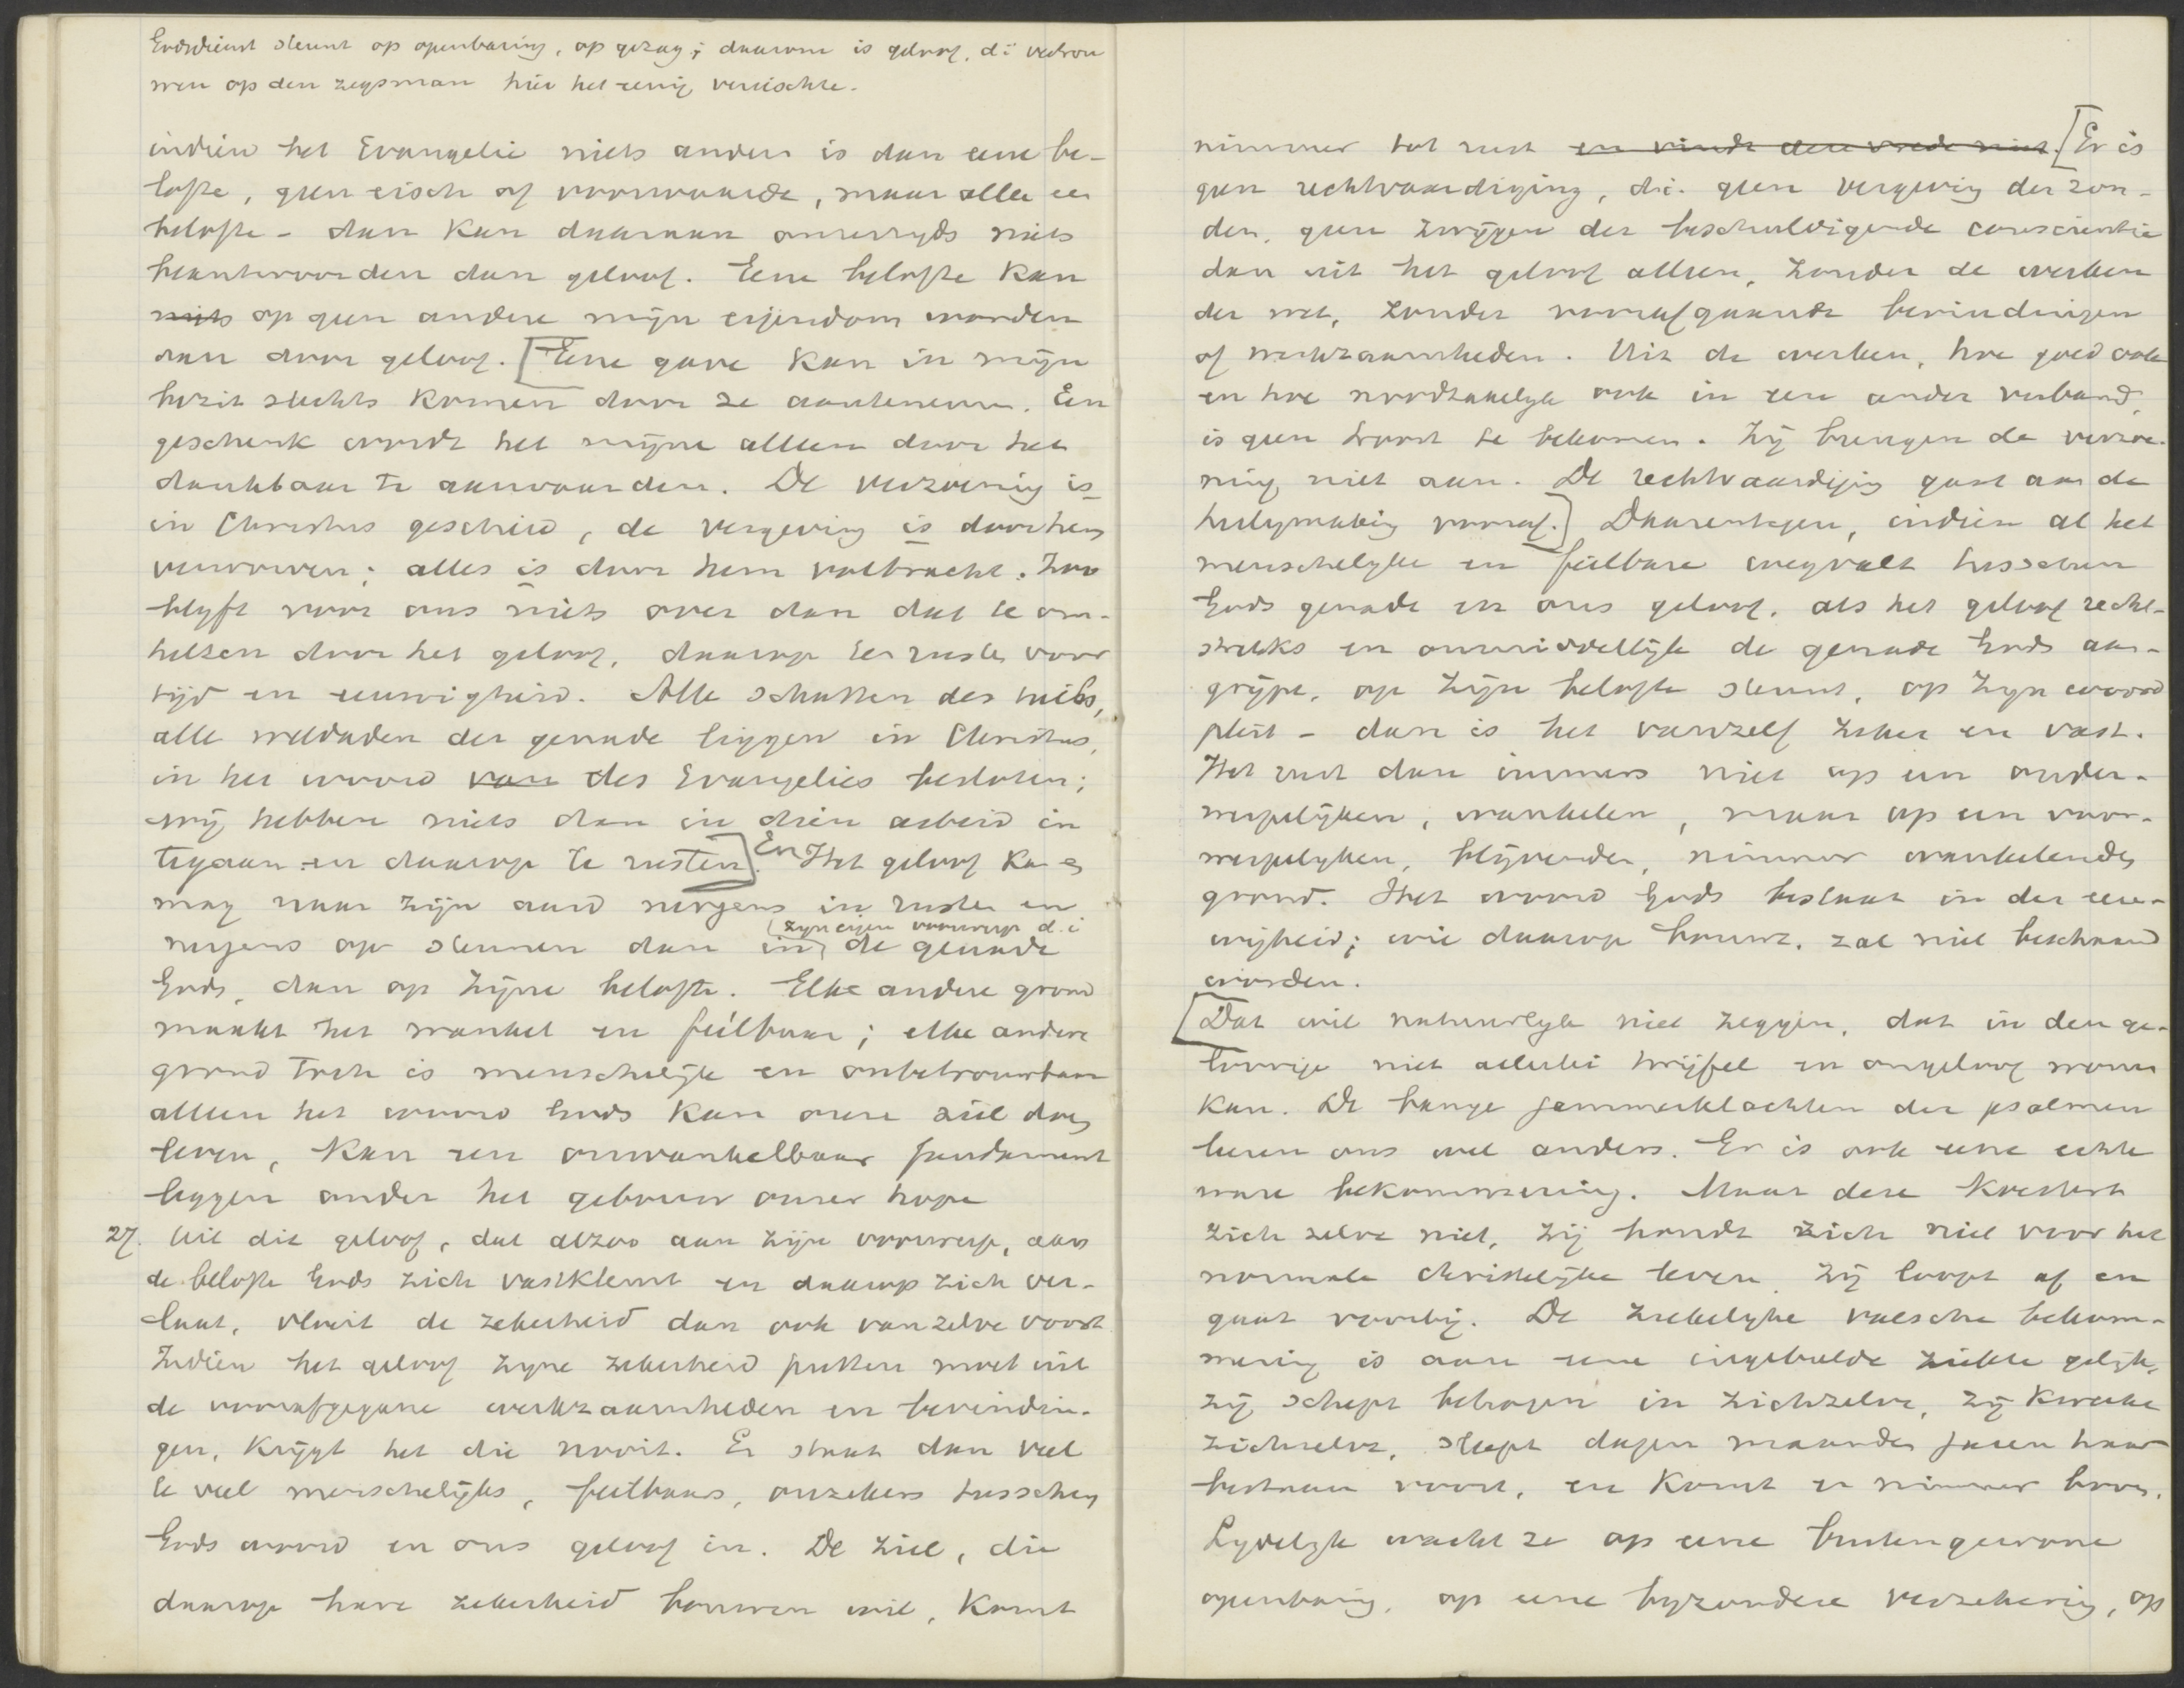 Godsdienst steunt op openbaring, op gezag; daarom is geloof, d.i. vertrou
wen op den zegsman hier het eenig vereischte.
indien het Evangelie niets anders is dan eene be-
lofte, geen eisch of voorwaarde, maar alleen een
belofte - dan kan daaraan onzerzyds niets
beantwoorden dan geloof. Eene belofte kan
niets op geen andere mijn eigendom worden
dan door geloof. [Eene gave kan in mijn
bezit slechts komen door ze aantenemen. Een
geschenk wordt het mijne alleen door het
dankbaar te aanvaarden. De verzoening is
in Christus geschied, de vergeving is door hem
verworven; alles is door hem volbracht. Zoo
blyft voor ons niets over dan dat te om-
helzen door het geloof, daarop te rusten voor
tijd en eeuwigheid. Alle schatten des heils,
alle weldaden der genade liggen in Christus,
in het woord van des Evangelies besloten;
wij hebben niets dan in dien arbeid in
tegaan en daarop te rusten]. En Het geloof kan en
mag naar zijn aard nergens in rusten en
nergens op steunen dan in (zyn eigen voorwerp d.i
de genade
Gods, dan op zijne belofte. Elke andere grond
maakt het wankel en feilbaar; elke andere
grond toch is menschelijk en onbetrouwbaar
alleen het woord Gods kan onze ziel doen
leven, kan een onwankelbaar fundament
leggen onder het gebouw onzer hope
27. Uit dit geloof, dat alzoo aan zijn voorwerp, aan
de belofte Gods zich vastklemt en daarop zich ver-
laat, vloeit de zekerheid dan ook vanzelve voort
Indien het geloof zyne zekerheid putten moet uit
de voorafgegane werkzaamheden en bevindin-
gen, krijgt het die nooit. Er staat dan veel
te veel menschelijks, feilbaars, onzekers tusschen
Gods woord en ons geloof in. De ziel, die
daarop hare zekerheid bouwen wil, komt
nimmer tot rust en vindt den vrede niet. [Er is
geen rechtvaardiging, d.i. geen vergeving der zon-
den, geen zwijgen der beschuldigende conscientie
dan uit het geloof alleen, zonder de werken
der wet, zonder voorafgaande bevindingen
of werkzaamheden. Uit de werken, hoe goed ook
en hoe noodzakelyk ook in een ander verband,
is geen troost te bekomen. Zij brengen de verzoe-
ning niet aan. De rechtvaardiging gaat aan de
heiligmaking vooraf.] Daarentegen, indien al het
menschelyke en feilbare wegvalt tusschen
Gods genade en ons geloof, als het geloof recht-
streeks en onmiddellijk de genade Gods aan-
grijpt, op zijn belofte steunt, op zyn woord
pleit - dan is het vanzelf zeker en vast.
Het rust dan immers niet op een onder-
werpelijken, wankelen, maar op een voor-
werpelyken, blijvenden, nimmer wankelenden
grond. Het woord Gods bestaat in der eeu-
wigheid; wie daarop bouwt, zal niet beschaamd
worden.
[Dat wil natuurlyk niet zeggen, dat in den ge-
loovige niet allerlei twijfel en ongeloof wonen
kan. De bange jammerklachten der psalmen
leeren ons wel anders. Er is ook eene echte
ware bekommering. Maar deze koestert
zich zelve niet, zij houdt zich niet voor het
normale christelijke leven, zij loopt af en
gaat voorbij. De ziekelyke valsche bekom-
mering is aan eene ingebeelde ziekte gelijk,
zij schept behagen in zichzelve, zij kweekt
zichzelve, sleept dagen maanden jaren haar
bestaan voort, en komt er nimmer boven.
Lydelyk wacht ze op eene buitengewone
openbaring, op eene byzondere verzekering, op